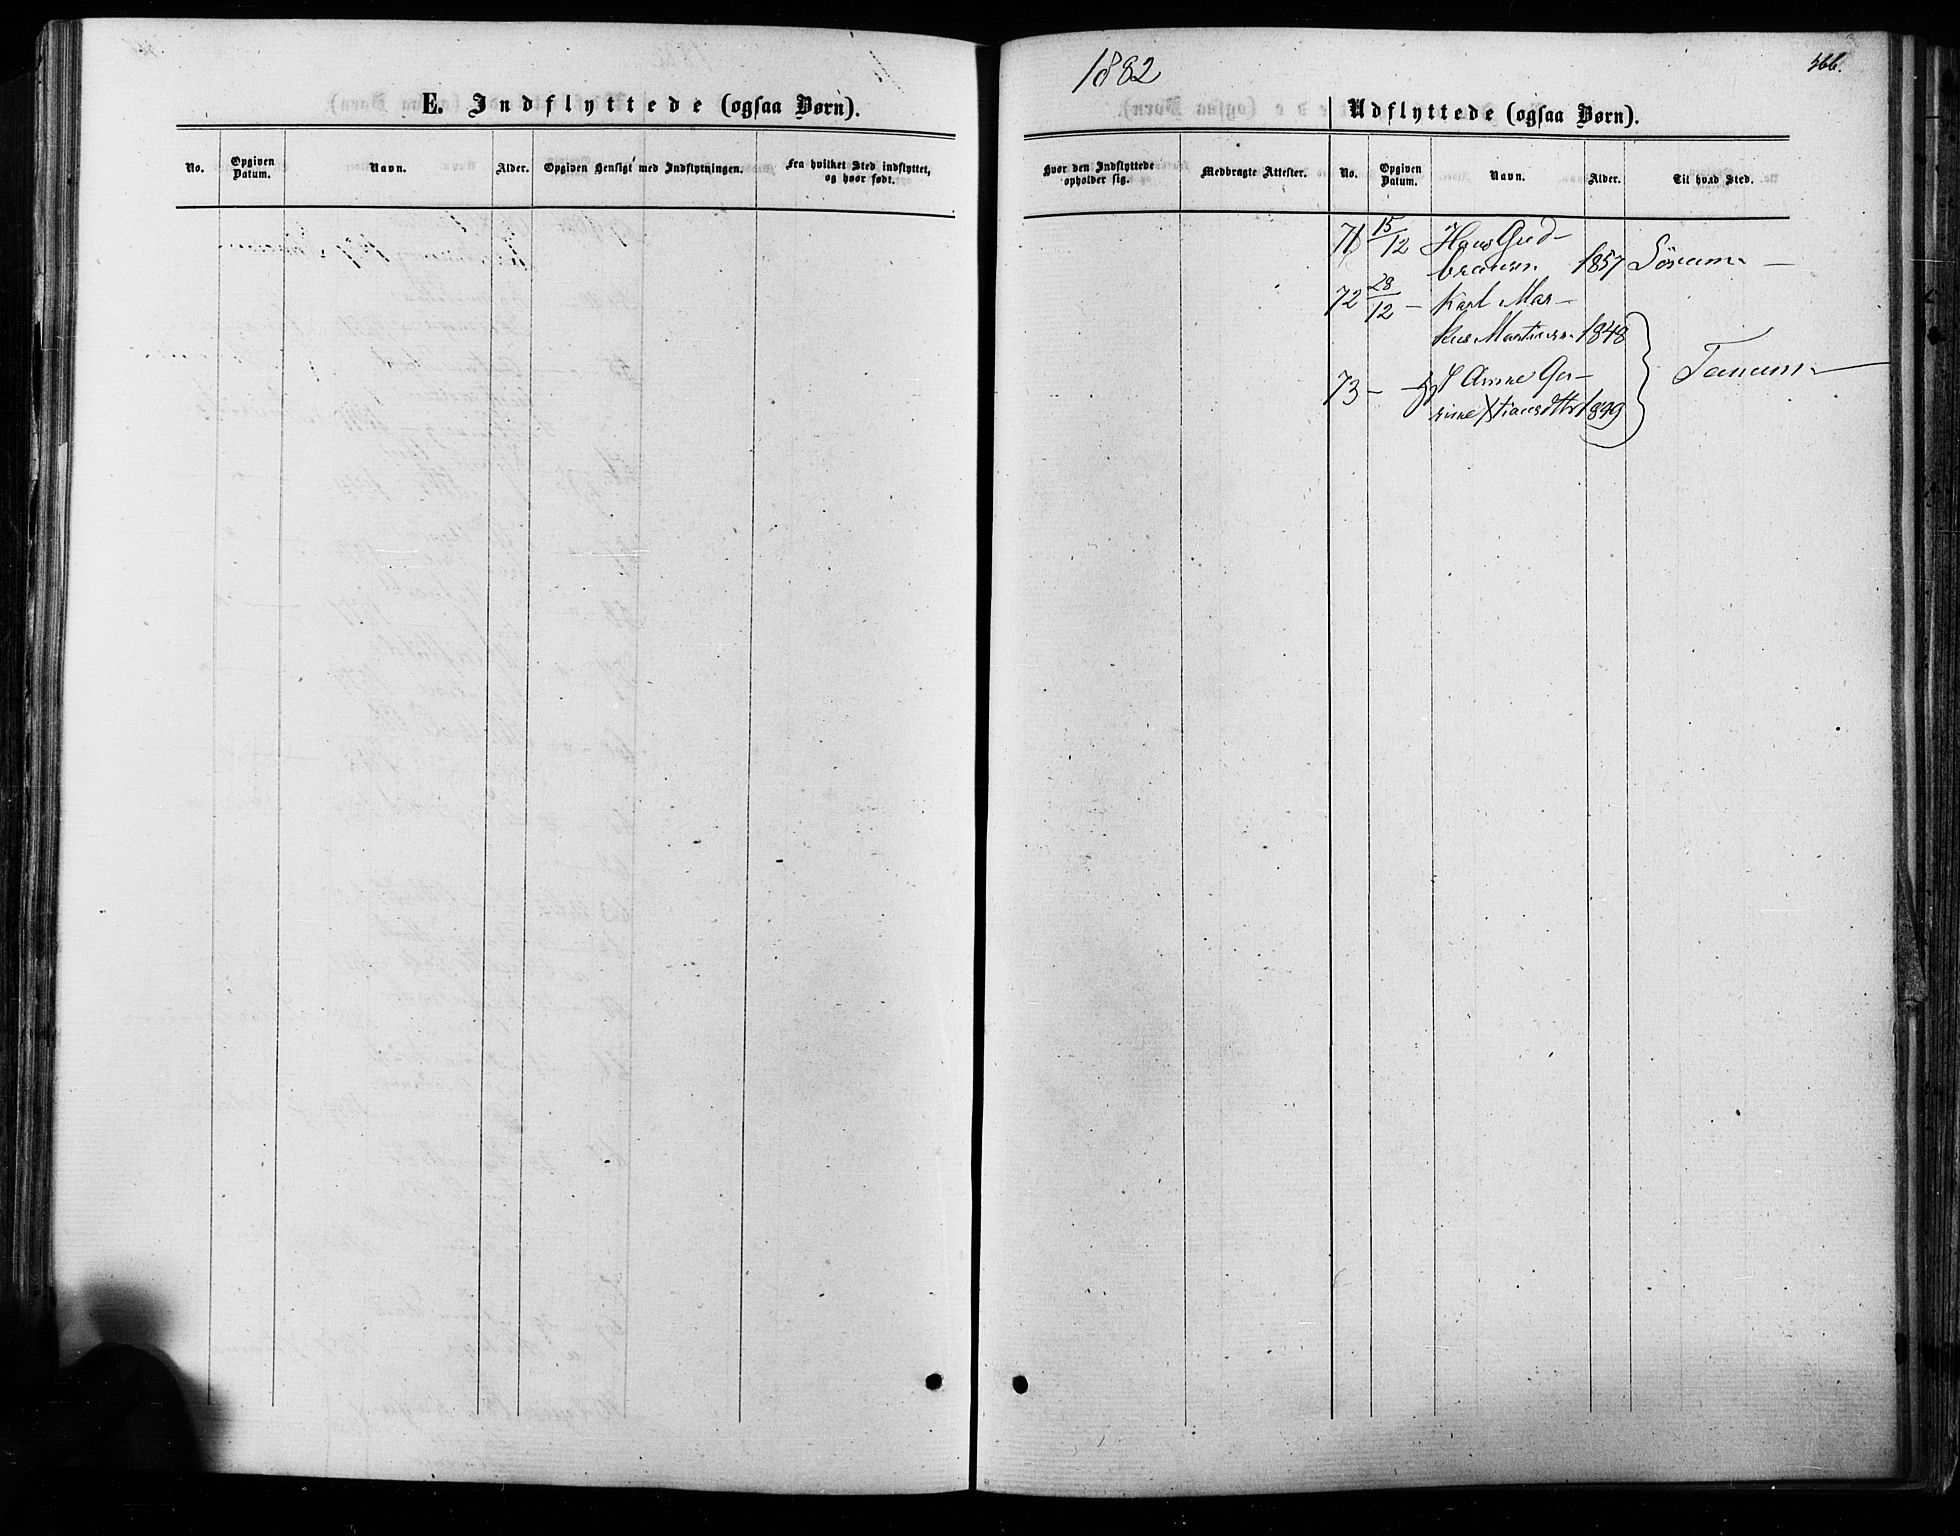 E. Indflyttede (ogsaa Børn).
No.
Opgiven
Datum.
Navn.
Alder.
Opgiven Hensigt med Indflytningen.
Fra hvilket Sted indflyttet,
og hvor født.
1882
366.
Udflyttede (ogsaa Børn).
Hvor den Indflyttede
opholder sig.
Medbragte Attester.
No.
Opgiven
Datum.
Navn.
Alder.
Til hvad Sted.
71 15/12 Hans Gud-
bransen 1857 Sörum -
72 28/12 - Karl Mar-
kus Martinsen 1848
73 - Anne Ge- Tanum -
rine Xtiansdtr